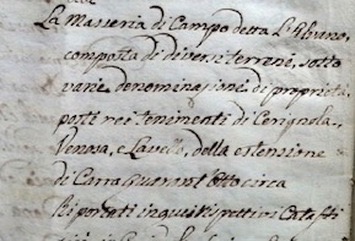 La Masseria di Campo detta L'
composta di diversi terreni, sotto
varie denominazioni di proprietà
posti nei tenimenti di Cerignola,
Venosa, e Lavello, della estensione
di Carra quarant'Otto circa
Riportati in quei rispettivi Catasti